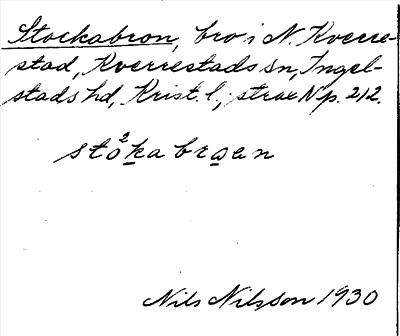 Stockabron, bro i N. Kverre-
stad, Kverrestads sn, Ingel-
stads hd, Krist. l.; strax N p. 212.
stòkabroen
Nils Nilsson 1930